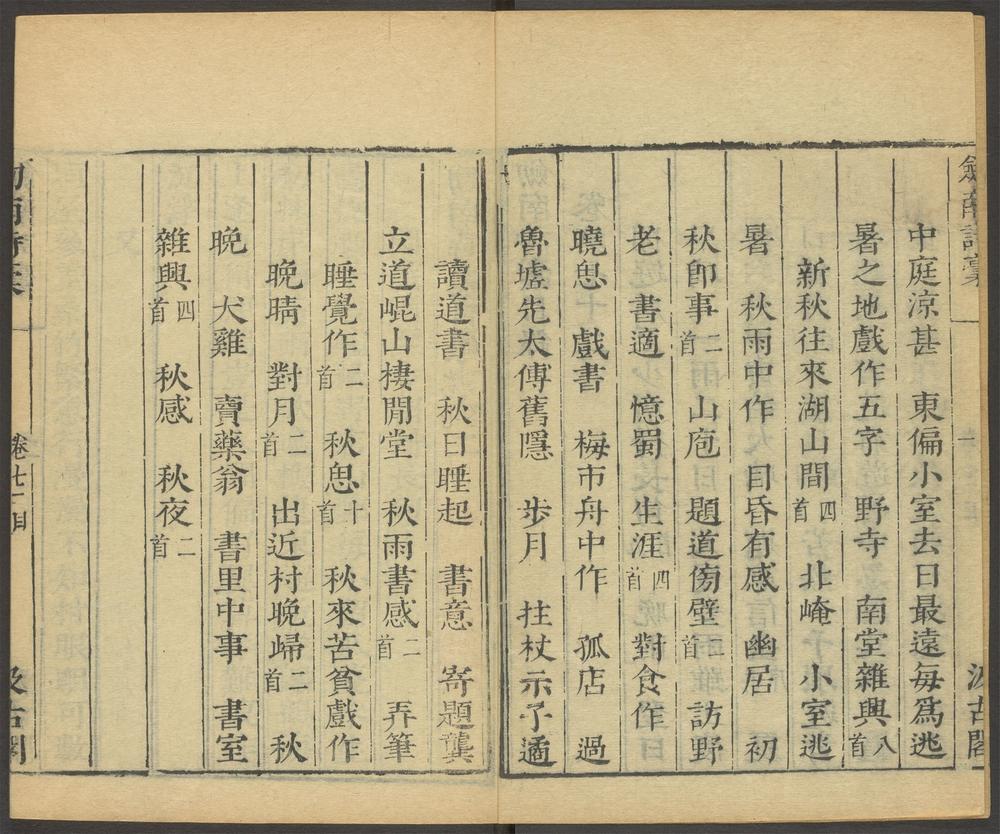 劔南詩稾
汲古閣
中庭涼甚 東偏小室去日最遠每爲逃
暑之地戲作五字 野寺 南堂雜興八首
新秋往來湖山間四首 北崦 小室逃
暑 秋雨中作 目昏有感 幽居 初
秋卽事二首 山庖 題道傍壁二首 訪野
老 書適 憶蜀 生涯四首 對食作
曉思 戲書 梅市舟中作 孤店 過
魯墟先太傅舊隱 步月 拄杖示子遹
讀道書 秋日睡起 書意 寄題龔
立道崐山棲閒堂 秋雨書感二首 弄筆
睡覺作二首 秋思十首 秋來苦貧戲作
晚晴 對月二首 出近村晚歸二首 秋
晚 犬雞 賣藥翁 書里中事 書室
雜興四首 秋感 秋夜二首
卷七一目
汲古閣